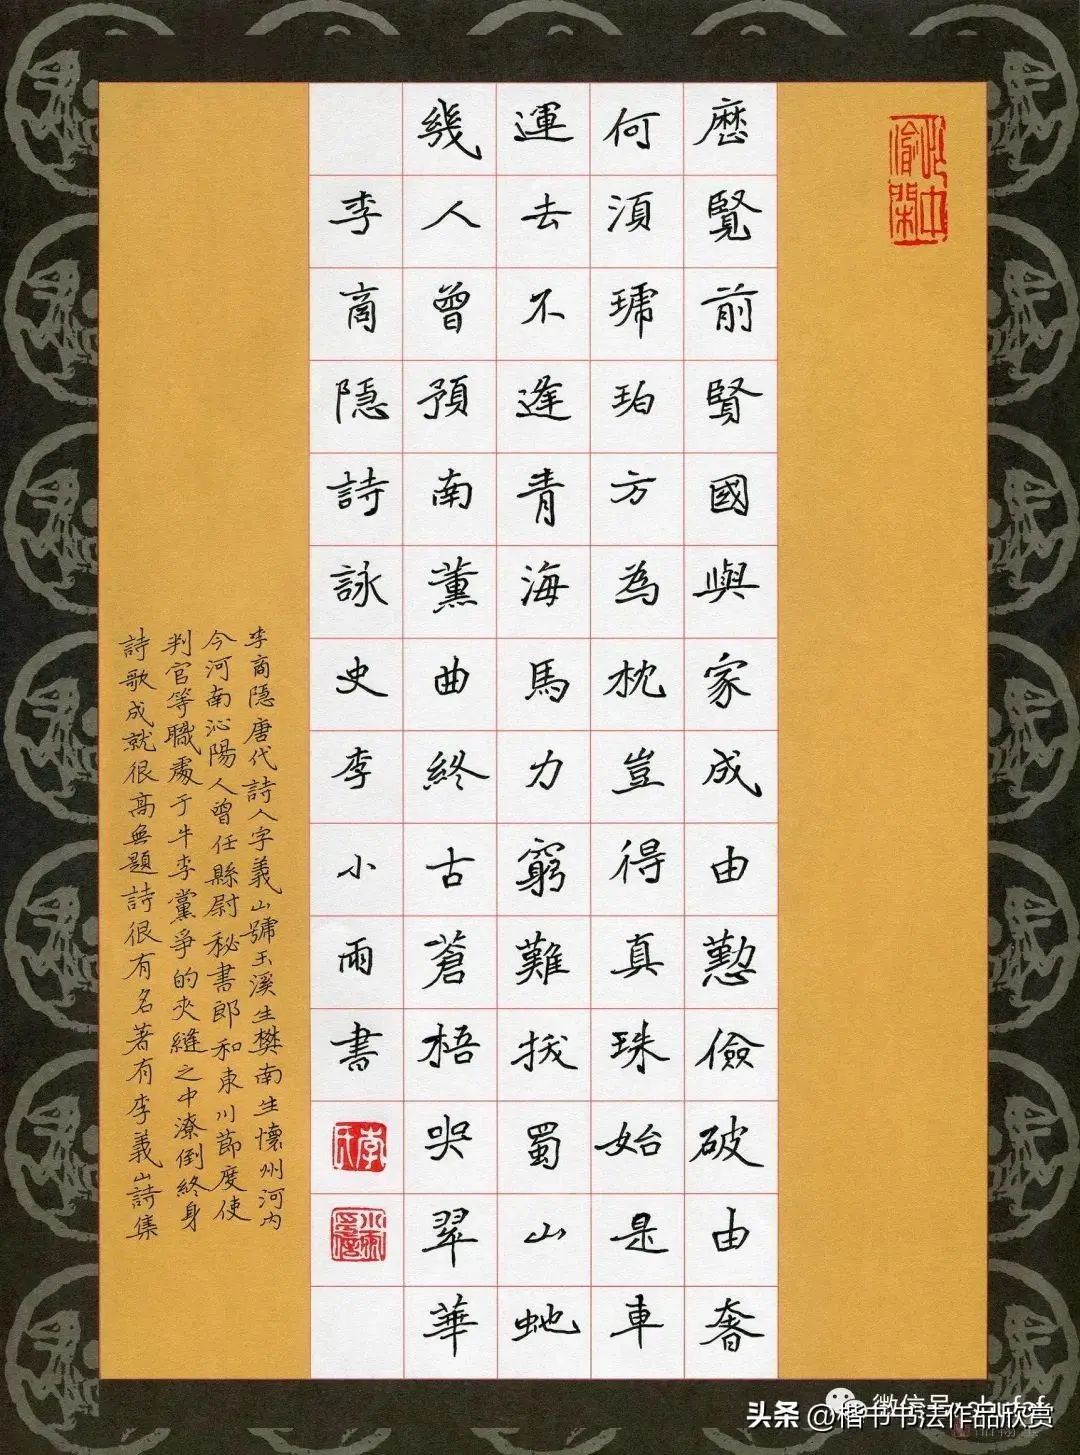 歷覽前賢國與家成由勤儉破由奢
何須琥珀方為枕豈得真珠始是車
運去不逢青海馬力窮難拔蜀山虵
幾人曾預南薰曲終古蒼梧哭翠華
李商隱詩詠史李小雨書
李商隱唐代詩人字義山號玉溪生樊南生懷州河內
今河南沁陽人曾任縣尉秘書郎和東川節度使
判官等職處于牛李黨爭的夾縫之中潦倒終身
詩歌成就很高無題詩很有名著有李義山詩集
頭条@楷书书法作品欣赏